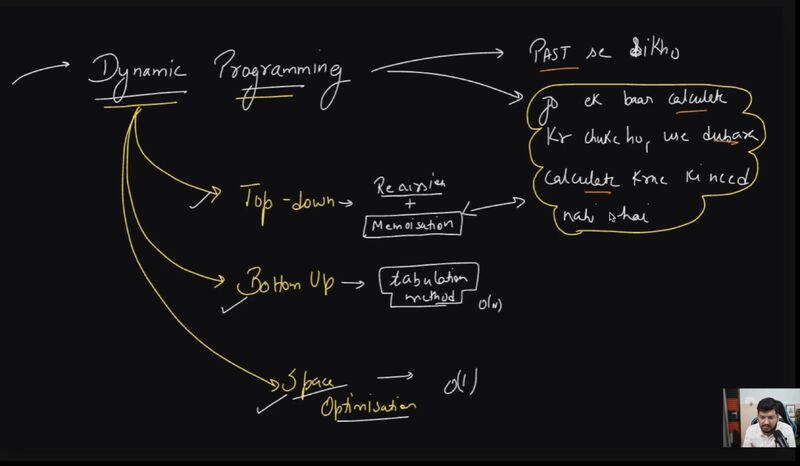 Dynamic Programming
PAST se sikho
jo ek baar calculate
kr chuke ho, use dubara
calculate krne ki need
nahi hai
Top-down → Recursion
+
Memoisation
Bottom Up → tabulation
method O(N)
Space → O(1)
Optimisation